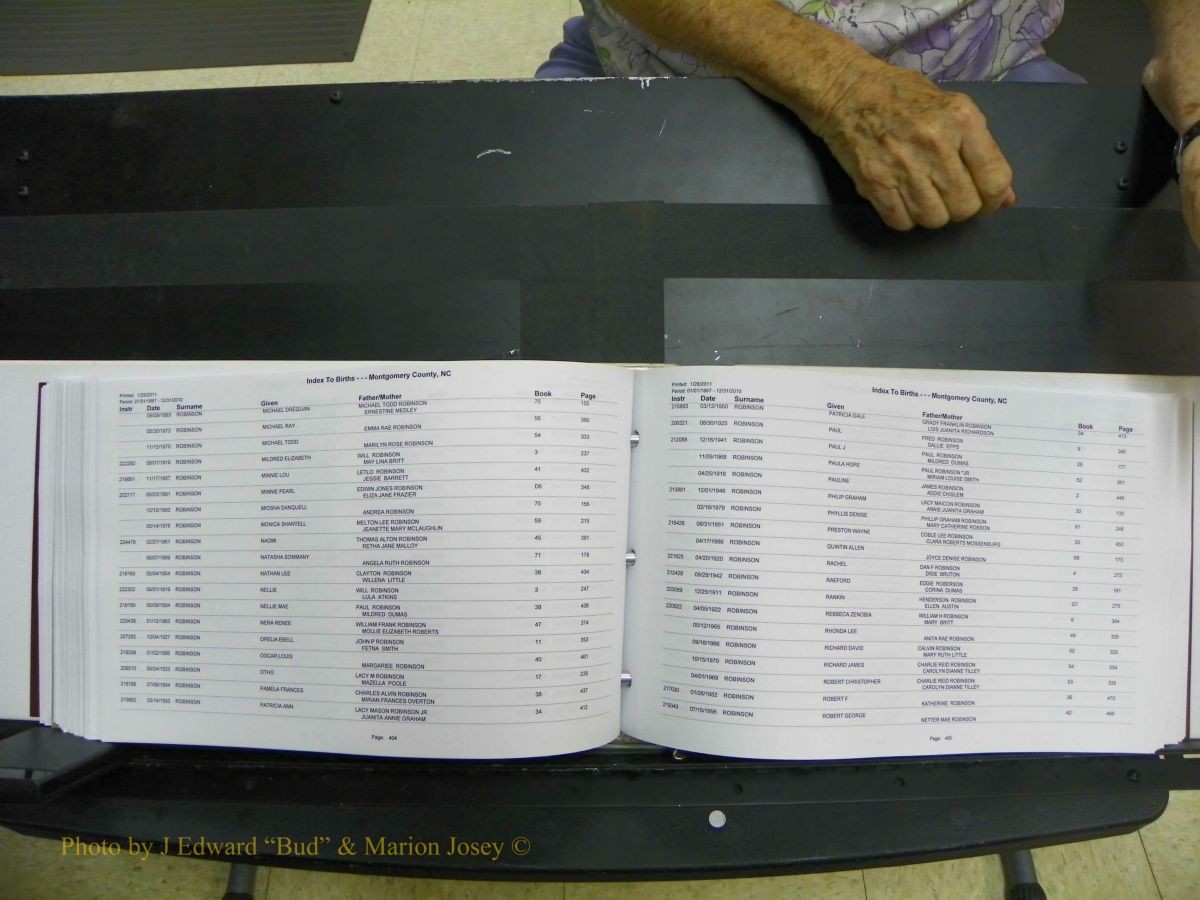 Index To Births - - - Montgomery County, NC
Printed: 1/28/2011
Period: 01/01/1867 - 12/31/2010
Instr Date Surname Given Father/Mother Book Page
09/09/1993 ROBINSON MICHAEL DREQUAN MICHAEL TODD ROBINSON 75 155
ERNESTINE MEDLEY
05/30/1972 ROBINSON MICHAEL RAY 56 360
EMMA RAE ROBINSON
11/13/1970 ROBINSON MICHAEL TODD 54 333
MARILYN ROSE ROBINSON
222292 08/01/1919 ROBINSON MILDRED ELIZABETH WILL ROBINSON 3 237
MAY LINA BRITT
219891 11/17/1957 ROBINSON MINNIE LOU LETLO ROBINSON 41 432
JESSIE BARRETT
202717 09/20/1891 ROBINSON MINNIE PEARL EDWIN JONES ROBINSON D6 348
ELIZA JANE FRAZIER
10/10/1993 ROBINSON MIOSHA DANQUELL 75 156
ANDREA ROBINSON
05/14/1976 ROBINSON MONICA SHANTELL MELTON LEE ROBINSON 59 215
JEANETTE MARY MCLAUGHLIN
224478 02/27/1961 ROBINSON NAOMI THOMAS ALTON ROBINSON 45 391
RETHA JANE MALLOY
06/07/1989 ROBINSON NATASHA SOMMANY 71 178
ANGELA RUTH ROBINSON
218165 05/04/1954 ROBINSON NATHAN LEE CLAYTON ROBINSON 38 434
WILLENA LITTLE
222302 09/01/1919 ROBINSON NELLIE WILL ROBINSON 3 247
LULA ATKINS
218189 06/09/1954 ROBINSON NELLIE MAE PAUL ROBINSON 38 438
MILDRED DUMAS
225438 01/12/1963 ROBINSON NERA RENEE WILLIAM FRANK ROBINSON 47 374
MOLLIE ELIZABETH ROBERTS
207282 10/04/1927 ROBINSON ORELIA EBELL JOHN P ROBINSON 11 353
FETNA SMITH
219338 01/02/1956 ROBINSON OSCAR LOUIS 40 461
MARGARIEE ROBINSON
209510 06/24/1933 ROBINSON OTHO LACY M ROBINSON 17 235
MAZELLA POOLE
218188 07/08/1954 ROBINSON PAMELA FRANCES CHARLES ALVIN ROBINSON 38 437
MIRIAN FRANCES OVERTON
215882 03/14/1950 ROBINSON PATRICIA ANN LACY MASON ROBINSON JR 34 412
JUANITA ANNIE GRAHAM
Page: 404
Index To Births - - - Montgomery County, NC
Printed: 1/28/2011
Period: 01/01/1867 - 12/31/2010
Instr Date Surname Given Father/Mother Book Page
215883 03/12/1950 ROBINSON PATRICIA DALE GRADY FRANKLIN ROBINSON 34 413
LOIS JUANITA RICHARDSON
206321 08/30/1925 ROBINSON PAUL FRED ROBINSON 9 346
SALLIE EPPS
212088 12/16/1941 ROBINSON PAUL J PAUL ROBINSON 25 177
MILDRED DUMAS
11/05/1968 ROBINSON PAULA HOPE PAUL ROBINSON *JR 52 361
MIRIAM LOUISE SMITH
04/25/1916 ROBINSON PAULINE JAMES ROBINSON 3 446
ADDIE CHISLEM
213881 12/01/1946 ROBINSON PHILIP GRAHAM LACY MAICON ROBINSON 30 133
ANNIE JUANITA GRAHAM
02/16/1979 ROBINSON PHYLLIS DENISE PHILLIP GRAHAM ROBINSON 61 248
MARY CATHERINE ROBSON
216426 08/31/1951 ROBINSON PRESTON WAYNE COBLE LEE ROBINSON 35 450
CLARA ROBERTS MOSSENBURG
04/17/1986 ROBINSON QUINTIN ALLEN 68 173
JOYCE DENISE ROBINSON
221825 04/20/1920 ROBINSON RACHEL DAN F ROBINSON 4 272
DISIE BRUTON
212428 09/28/1942 ROBINSON RAEFORD EDDIE ROBERSON 26 161
CORINA DUMAS
203069 12/25/1911 ROBINSON RANKIN HENDERSON ROBINSON D7 275
ELLEN AUSTIN
220922 04/05/1922 ROBINSON REBBECA ZENOBIA WILLIAM H ROBINSON 6 394
MARY BRITT
05/12/1965 ROBINSON RHONDA LEE 49 326
ANITA RAE ROBINSON
09/18/1966 ROBINSON RICHARD DAVID CALVIN ROBINSON 50 325
MARY RUTH LITTLE
10/15/1970 ROBINSON RICHARD JAMES CHARLIE REID ROBINSON 54 334
CAROLYN DIANNE TILLEY
04/01/1969 ROBINSON ROBERT CHRISTOPHER CHARLIE REID ROBINSON 53 335
CAROLYN DIANNE TILLEY
217030 01/28/1952 ROBINSON ROBERT F 36 470
KATHERINE ROBINSON
219343 07/15/1956 ROBINSON ROBERT GEORGE 40 466
NETTER MAE ROBINSON
Page: 405
Photo by J Edward “Bud” & Marion Josey ©